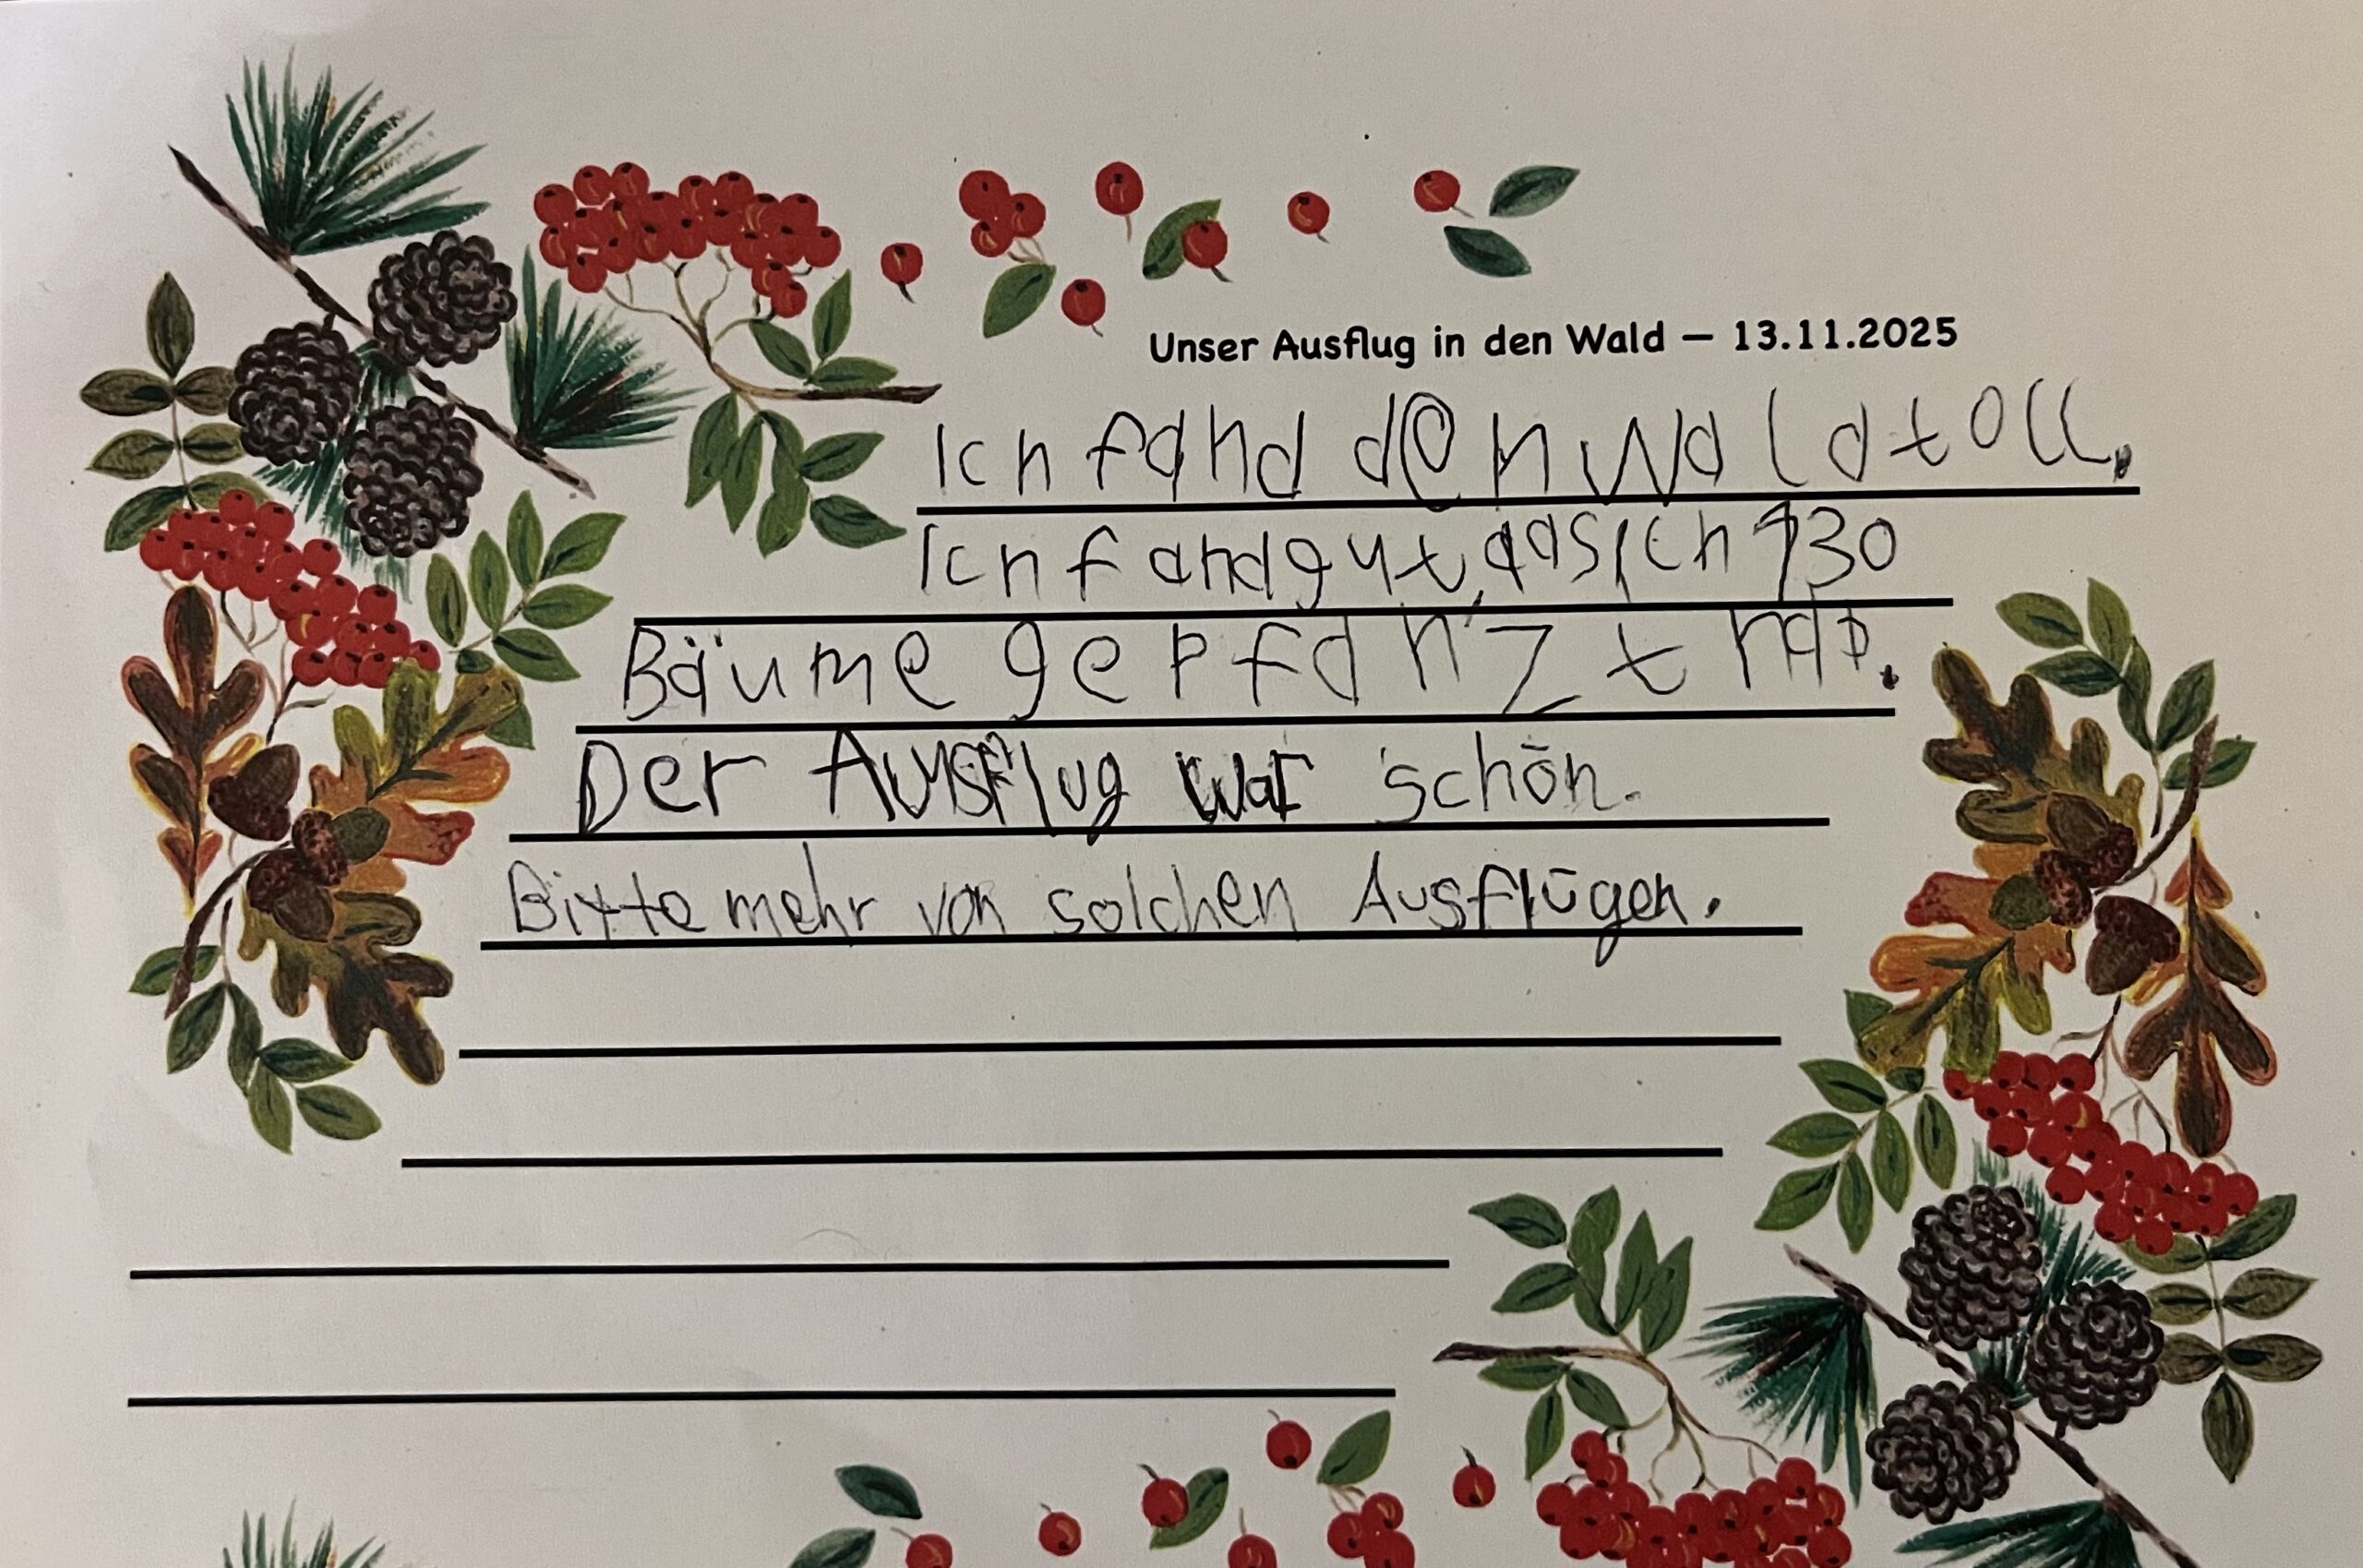 Unser Ausflug in den Wald – 13.11.2025
Ich fand den Wald toll.
Ich fand gut, das ich 130
Bäume gepfanzt hab.
Der Ausflug war schön.
Bitte mehr von solchen Ausflügen.